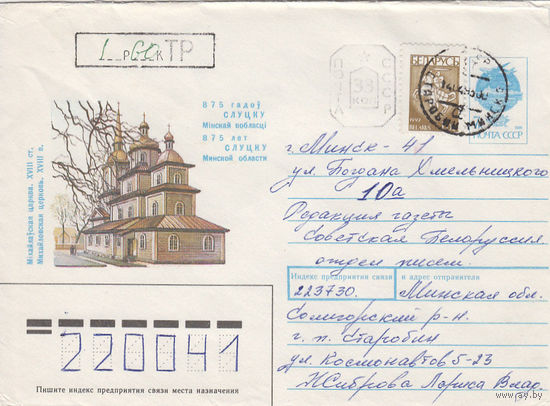 1 р 60 к ТР
875 гадоў
СЛУЦКУ
Мінскай вобласці
875 лет
СЛУЦКУ
Минской области
Міхайлаўская царква. XVIII ст.
Михайловская церковь. XVIII в.
ПОЧТА
СССР
коп
БЕЛАРУСЬ
1992
BELARUS
СТАРОБИН МИНСК.
ПОЧТА СССР
г. Минск - 41
ул. Богдана Хмельницкого
10а
Редакция газеты
Советская Белоруссия
отдел писем.
Индекс предприятия связи и адрес отправителя
223730. Минская обл.
Солигорский р-н.
г. п. Старобин
ул. Космонавтов 5-23
Жиброва Лариса Влад.
220041
Пишите индекс предприятия связи места назначения
www.ay.by